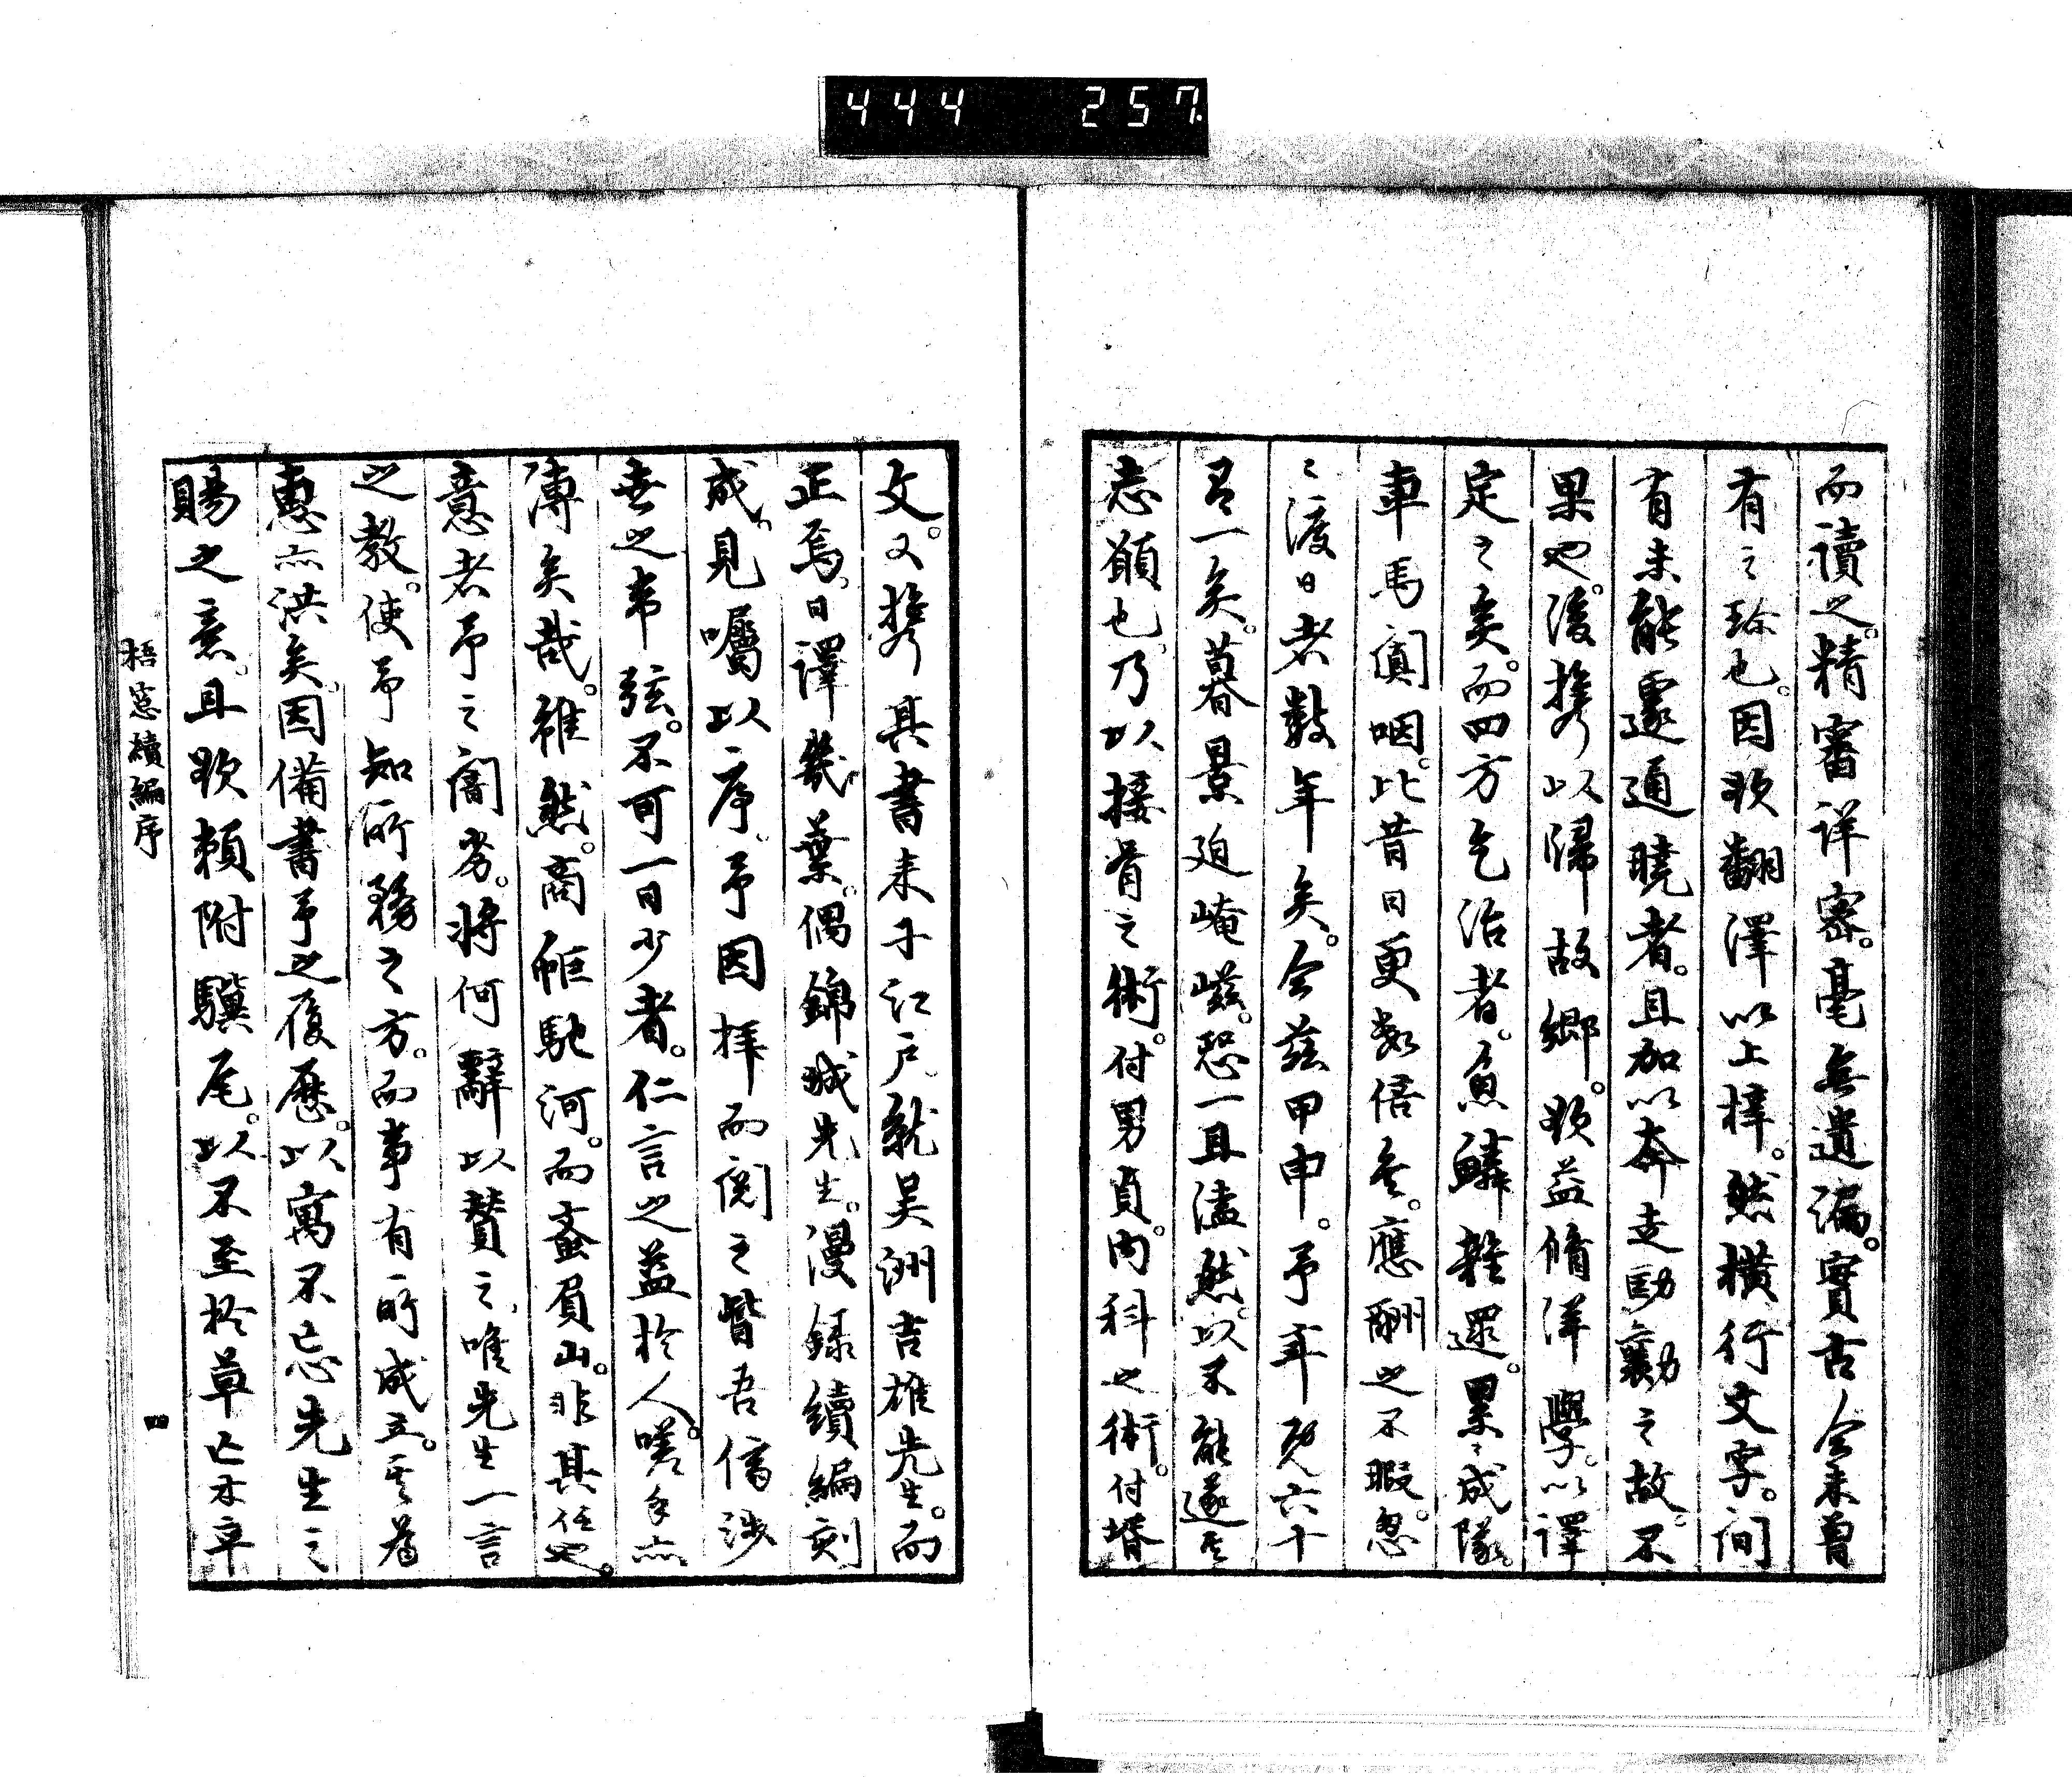 444 257
而讀之。精審詳密。毫無遺漏。實古今未曾
有之珍也。因欲翻澤以上梓。然橫行文字。間
有未能遽通曉者。且加以奔走劻勷之故。不
果也。後携以歸故鄉。欲益脩洋學。以譯
定之矣。而四方乞治者。魚鱗雜遝。累々成隊。
車馬闐咽。比昔日更數倍矣。應酬之不暇。忽
々渡日者數年矣。今茲甲申。予年既六十
有一矣。暮景迫崦嵫。恐一旦溘然。以不能遂其
志願也、乃以接骨之術。付男貞。內科之術。付壻
文。又携其書来于江戶、就吴洲吉雄先生。而
正焉、日譯幾葉。偶錦城先生。漫録續編刻
成、見囑以序。予因拝而閲之皆吾儕涉
世之韋弦。不可一日少者。仁言之益於人。嗟乎亦
溥矣哉。雖然。商蚷馳河。而蚉負山。非其任也。
意者予之闇劣。將何辭以贊之、唯先生一言
之教。使予知所務之方。而事有所成立。其舊
恵亦洪矣。因備書予之履歷。以寓不忘先生之
賜之意。且欲頼附驥尾。以不至於草亡木卒
梧窓續編序
四